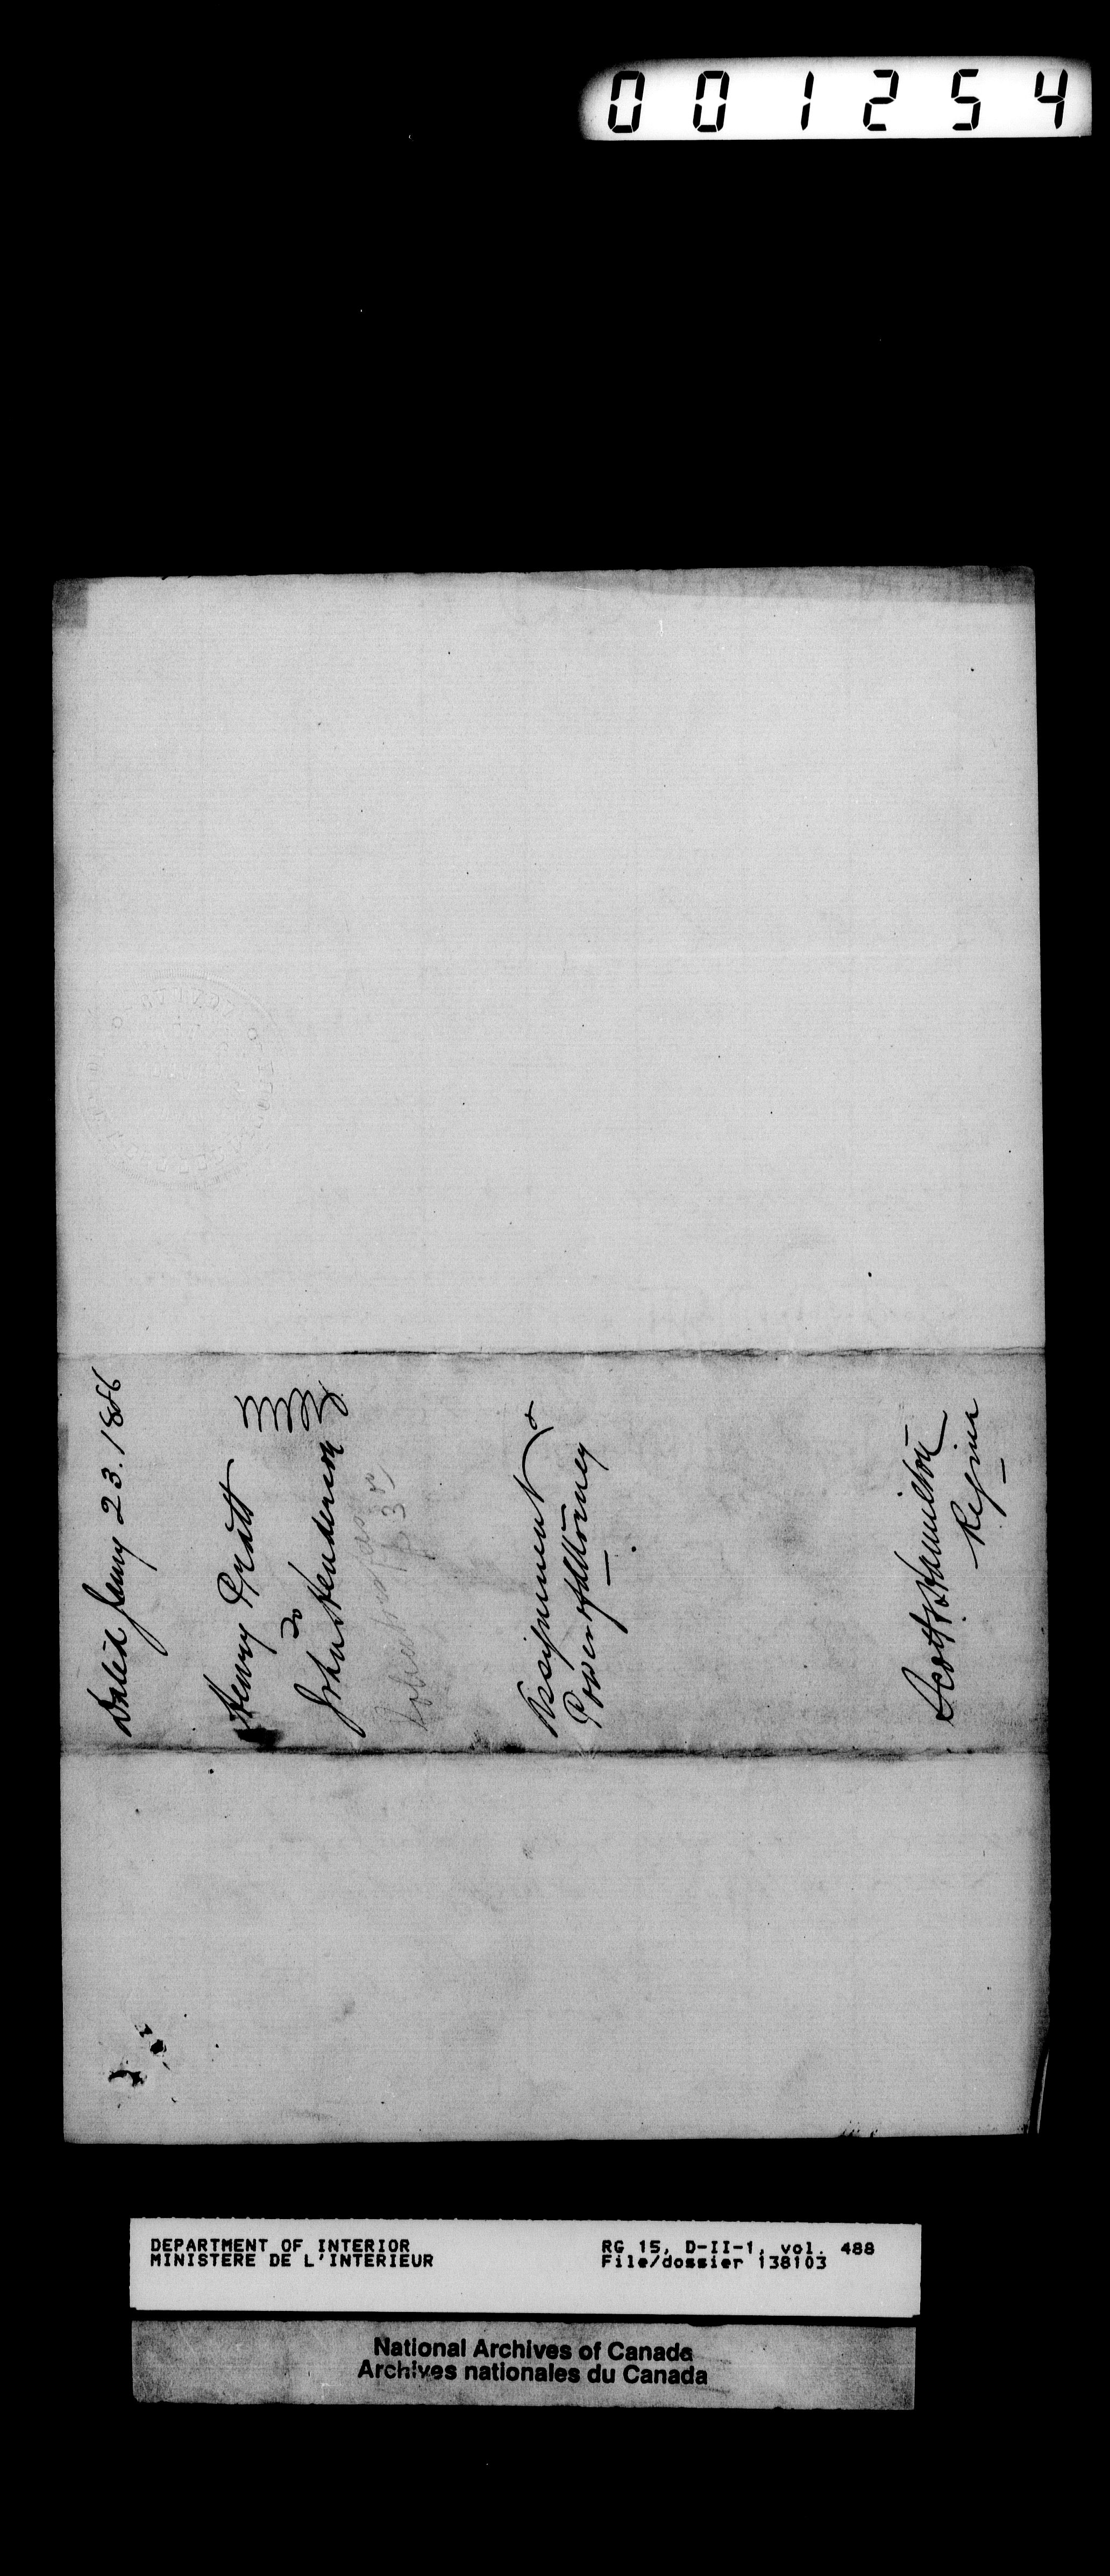 001254
Dated Jany 23. 1886
Henry Pratt
to
John Henderson
Assignment &
Power of Attorney
Scott & Hamilton
Regina
DEPARTMENT OF INTERIOR
MINISTERE DE L'INTERIEUR
RG 15, D-II-1, vol. 488
File/dossier 138103
National Archives of Canada
Archives nationales du Canada